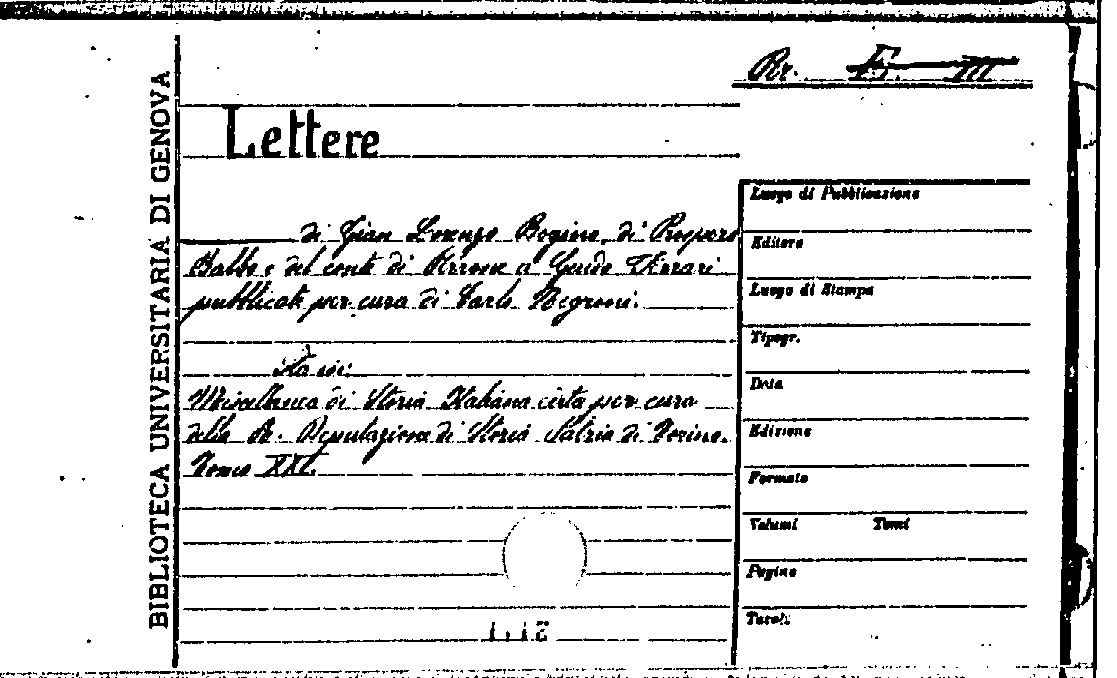 BIBLIOTECA UNIVERSITARIA DI GENOVA
Rr. E. III
Lettere
di Gian Lorenzo Bogino, di Prospero
Balbo e del conte di a Guido Ferrari
pubblicate per cura di Carlo Negroni.
Sta in:
Miscellanea di Storia Italiana edita per cura
della R. Deputazione di Storia Patria di Torino.
Tomo XXI.
Luogo di Pubblicazione
Editore
Luogo di Stampa
Tipogr.
Data
Edizione
Formato
Volumi Tomi
Pagine
Tavole